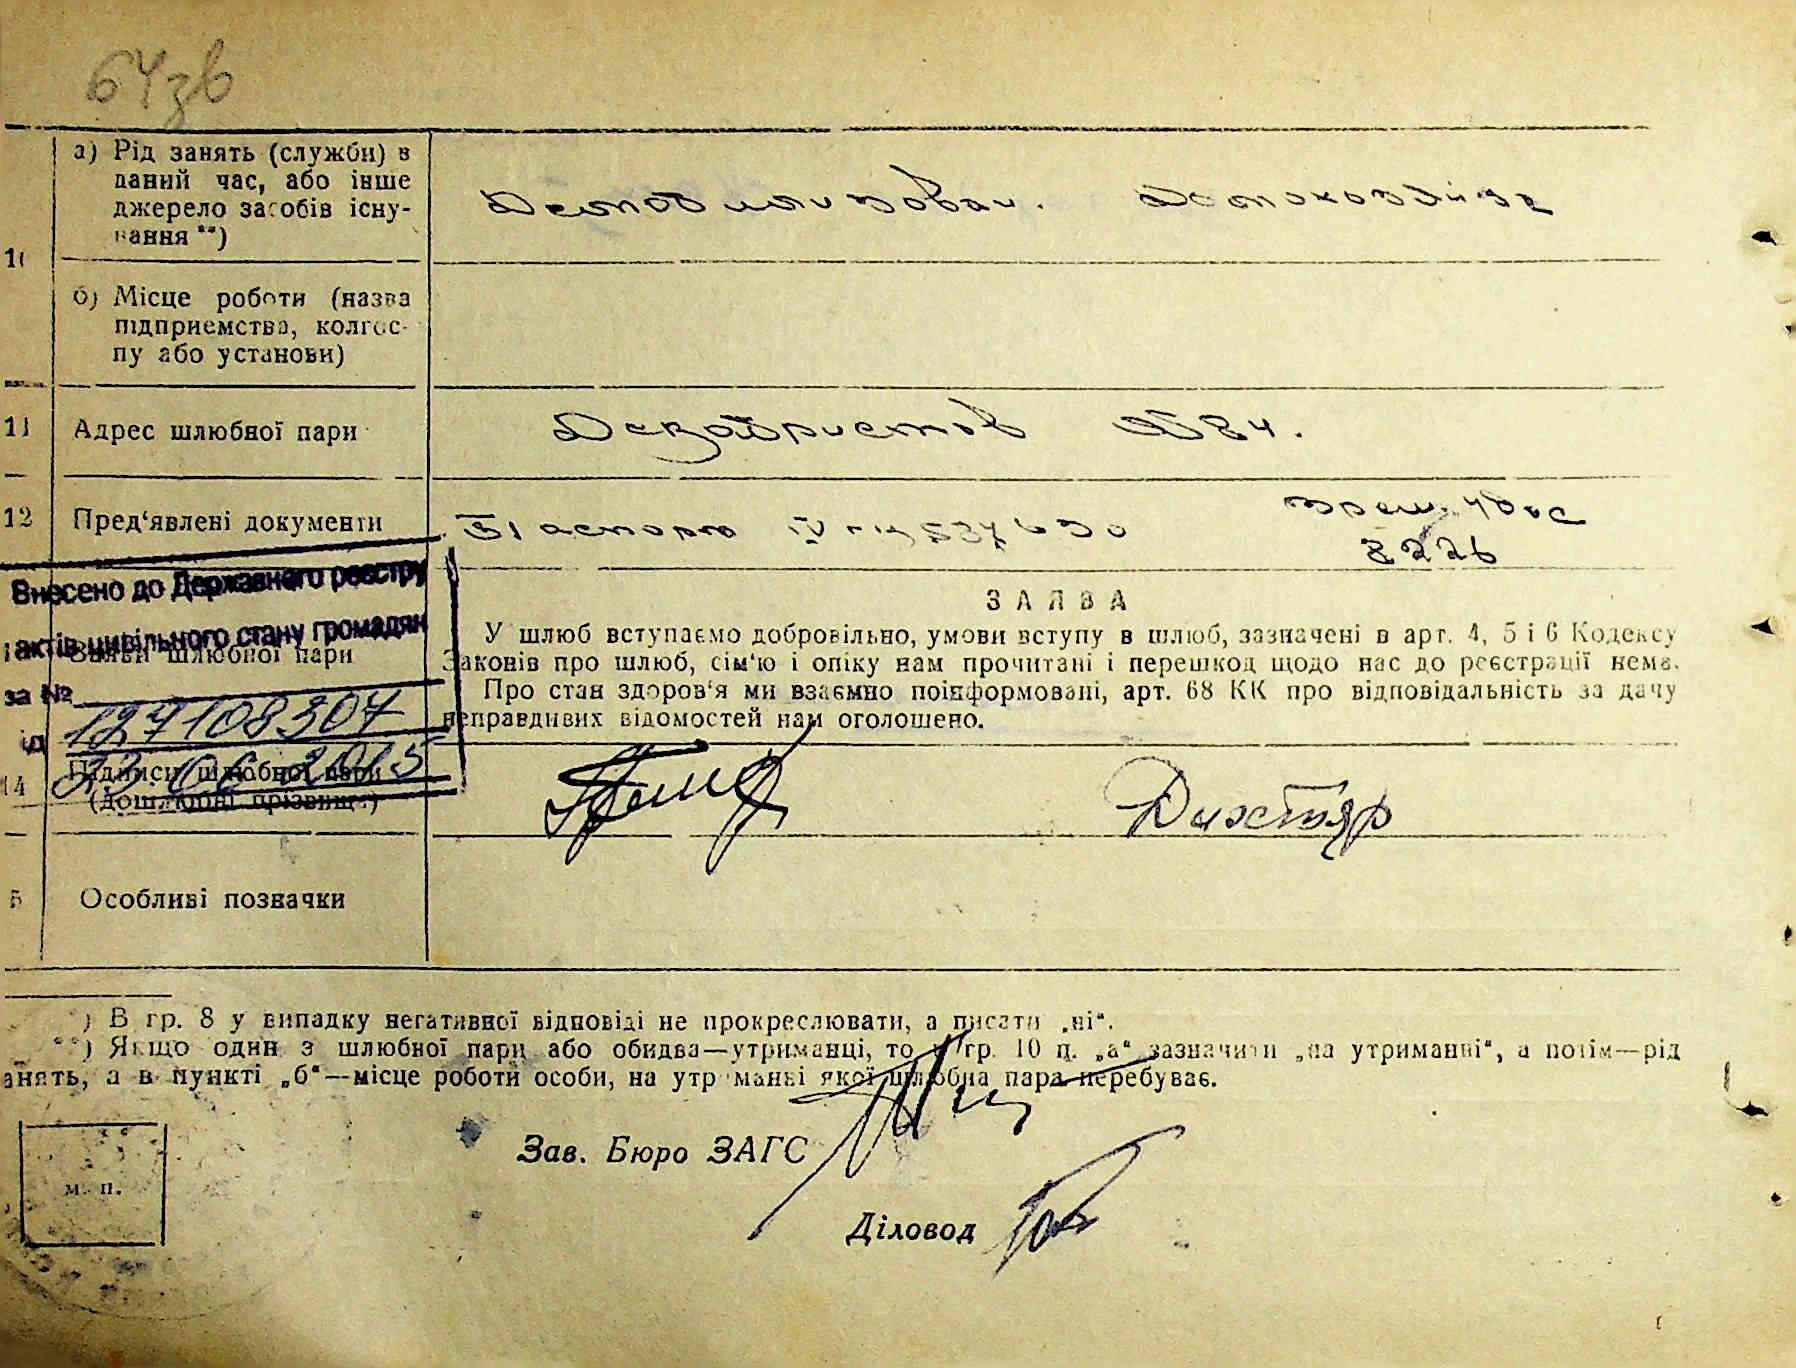 64зв
а) Рід занять (служби) в
даний час, або інше
джерело засобів існу-
вання **)
Демобилизован. Домохозяйка
10
б) Місце роботи (назва
підприємства, колгос-
пу або установи)
11 Адрес шлюбної пари Декабристов №84.
12 Пред'явлені документи Паспорт IV
8226
Внесено до Державного реєстру
актів цивільного стану громадян
за №
127108307
ід 23 06 2015
Заяви шлюбної пари
ЗАЯВА
У шлюб вступаємо добровільно, умови вступу в шлюб, зазначені в арт. 4, 5 і 6 Кодексу
Законів про шлюб, сім'ю і опіку нам прочитані і перешкод щодо нас до реєстрації нема.
Про стан здоров'я ми взаємно поінформовані, арт. 68 КК про відповідальність за дачу
неправдивих відомостей нам оголошено.
14 Підписи шлюбної пари
(дошлюбні прізвища)
Дихтяр
5 Особливі позначки
*) В гр. 8 у випадку негативної відповіді не прокреслювати, а писати „ні“.
**) Якщо один з шлюбної пари або обидва—утриманці, то у гр. 10 п. „а“ зазначити „на утриманні“, а потім—рід
занять, а в пункті „б“—місце роботи особи, на утриманні якої шлюбна пара перебуває.
Зав. Бюро ЗАГС
м. п.
Діловод